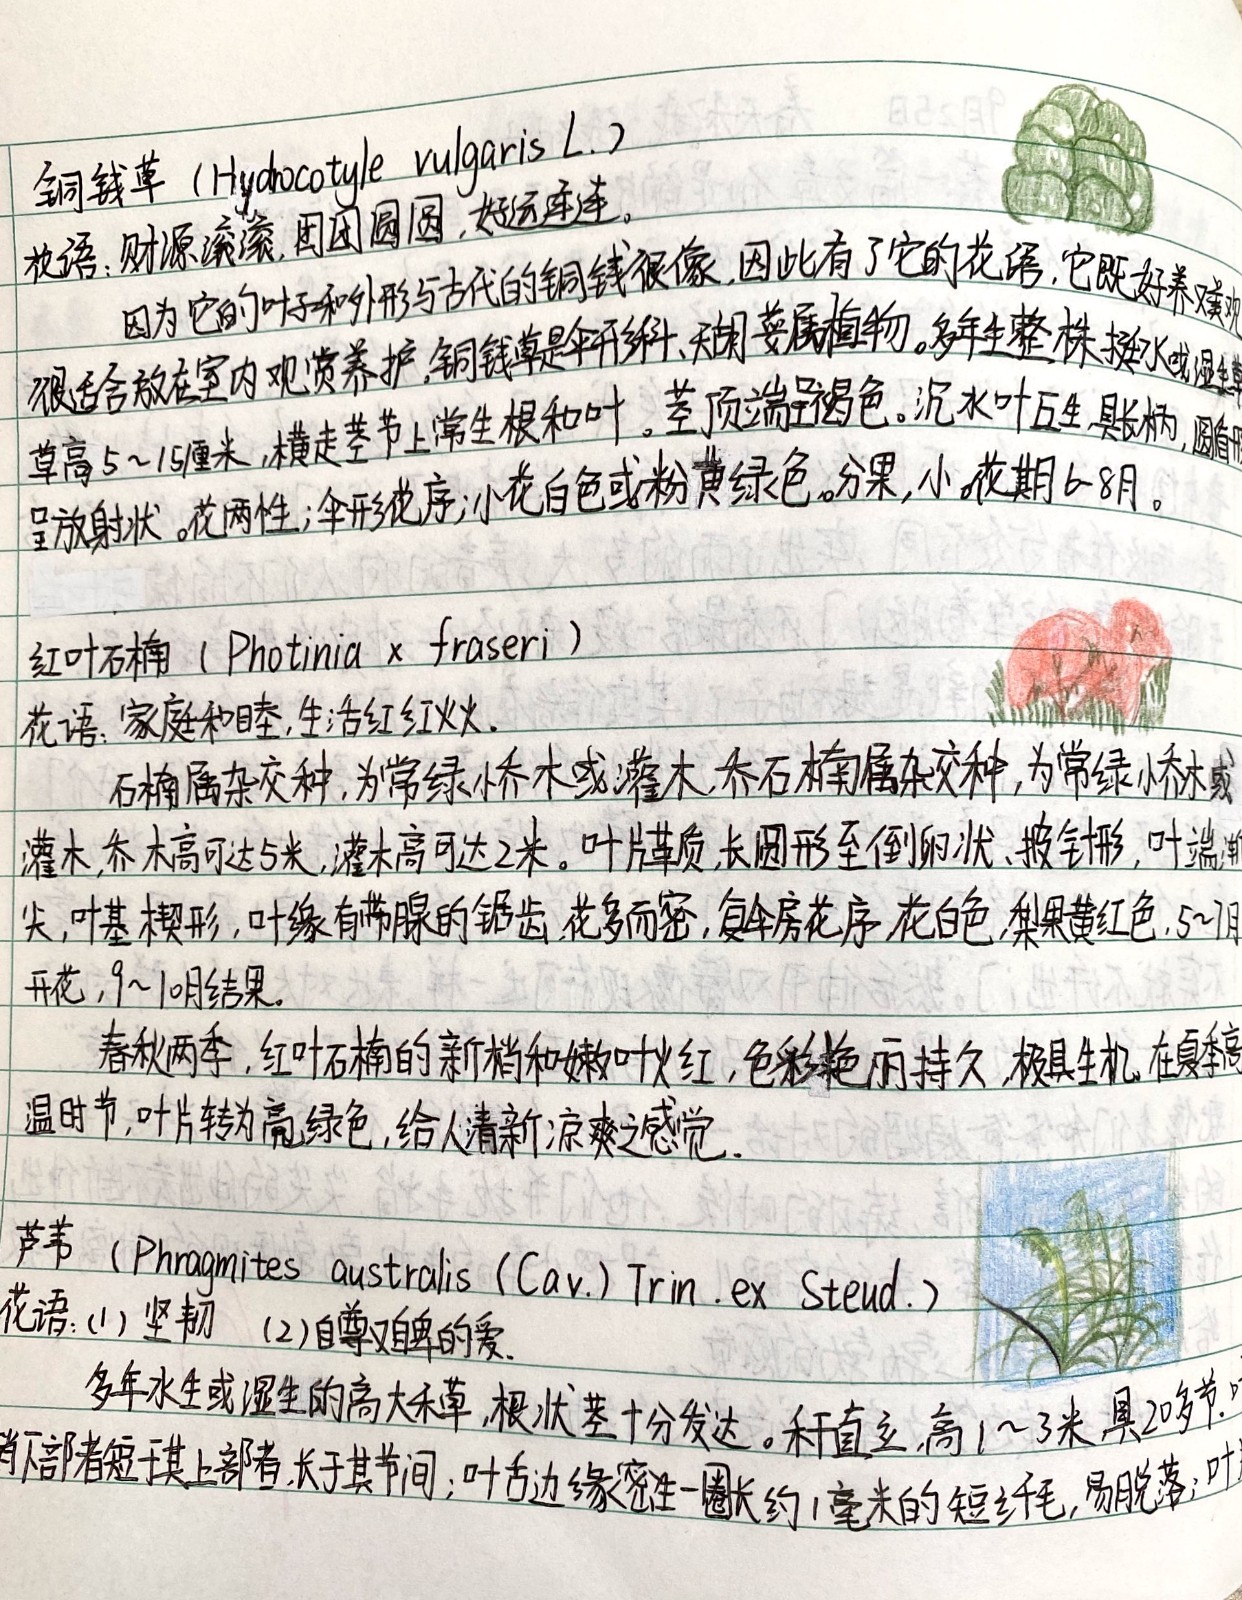 铜钱草（Hydrocotyle vulgaris L.）
花语：财源滚滚，团团圆圆，好运连连。
因为它的叶子和外形与古代的铜钱很像，因此有了它的花语，它既好养又美观
很适合放在室内观赏养护，铜钱草是伞形科、天胡荽属植物。多年生整株挺水或湿生草
草高5～15厘米，横走茎节上常生根和叶。茎顶端呈褐色。沉水叶互生，具长柄，圆盾形
呈放射状。花两性；伞形花序；小花白色或粉黄绿色。分果，小。花期6-8月。
红叶石楠（Photinia × fraseri）
花语：家庭和睦，生活红红火火．
石楠属杂交种，为常绿小乔木或灌木，乔石楠属杂交种，为常绿小乔木或
灌木，乔木高可达5米，灌木高可达2米。叶片革质，长圆形至倒卵状、披针形，叶端渐
尖，叶基楔形，叶缘有带腺的锯齿，花多而密，复伞房花序，花白色，梨果黄红色，5～7月
开花，9～10月结果。
春秋两季，红叶石楠的新梢和嫩叶火红，色彩艳丽持久，极具生机。在夏季高
温时节，叶片转为亮绿色，给人清新凉爽之感觉．
芦苇（Phragmites australis (Cav.) Trin. ex Steud.）
花语：(1) 坚韧 (2)自尊又自卑的爱．
多年水生或湿生的高大禾草，根状茎十分发达。秆直立，高1～3米，具20多节．叶
鞘下部者短于其上部者，长于其节间；叶舌边缘密生一圈长约1毫米的短纤毛，易脱落；叶片